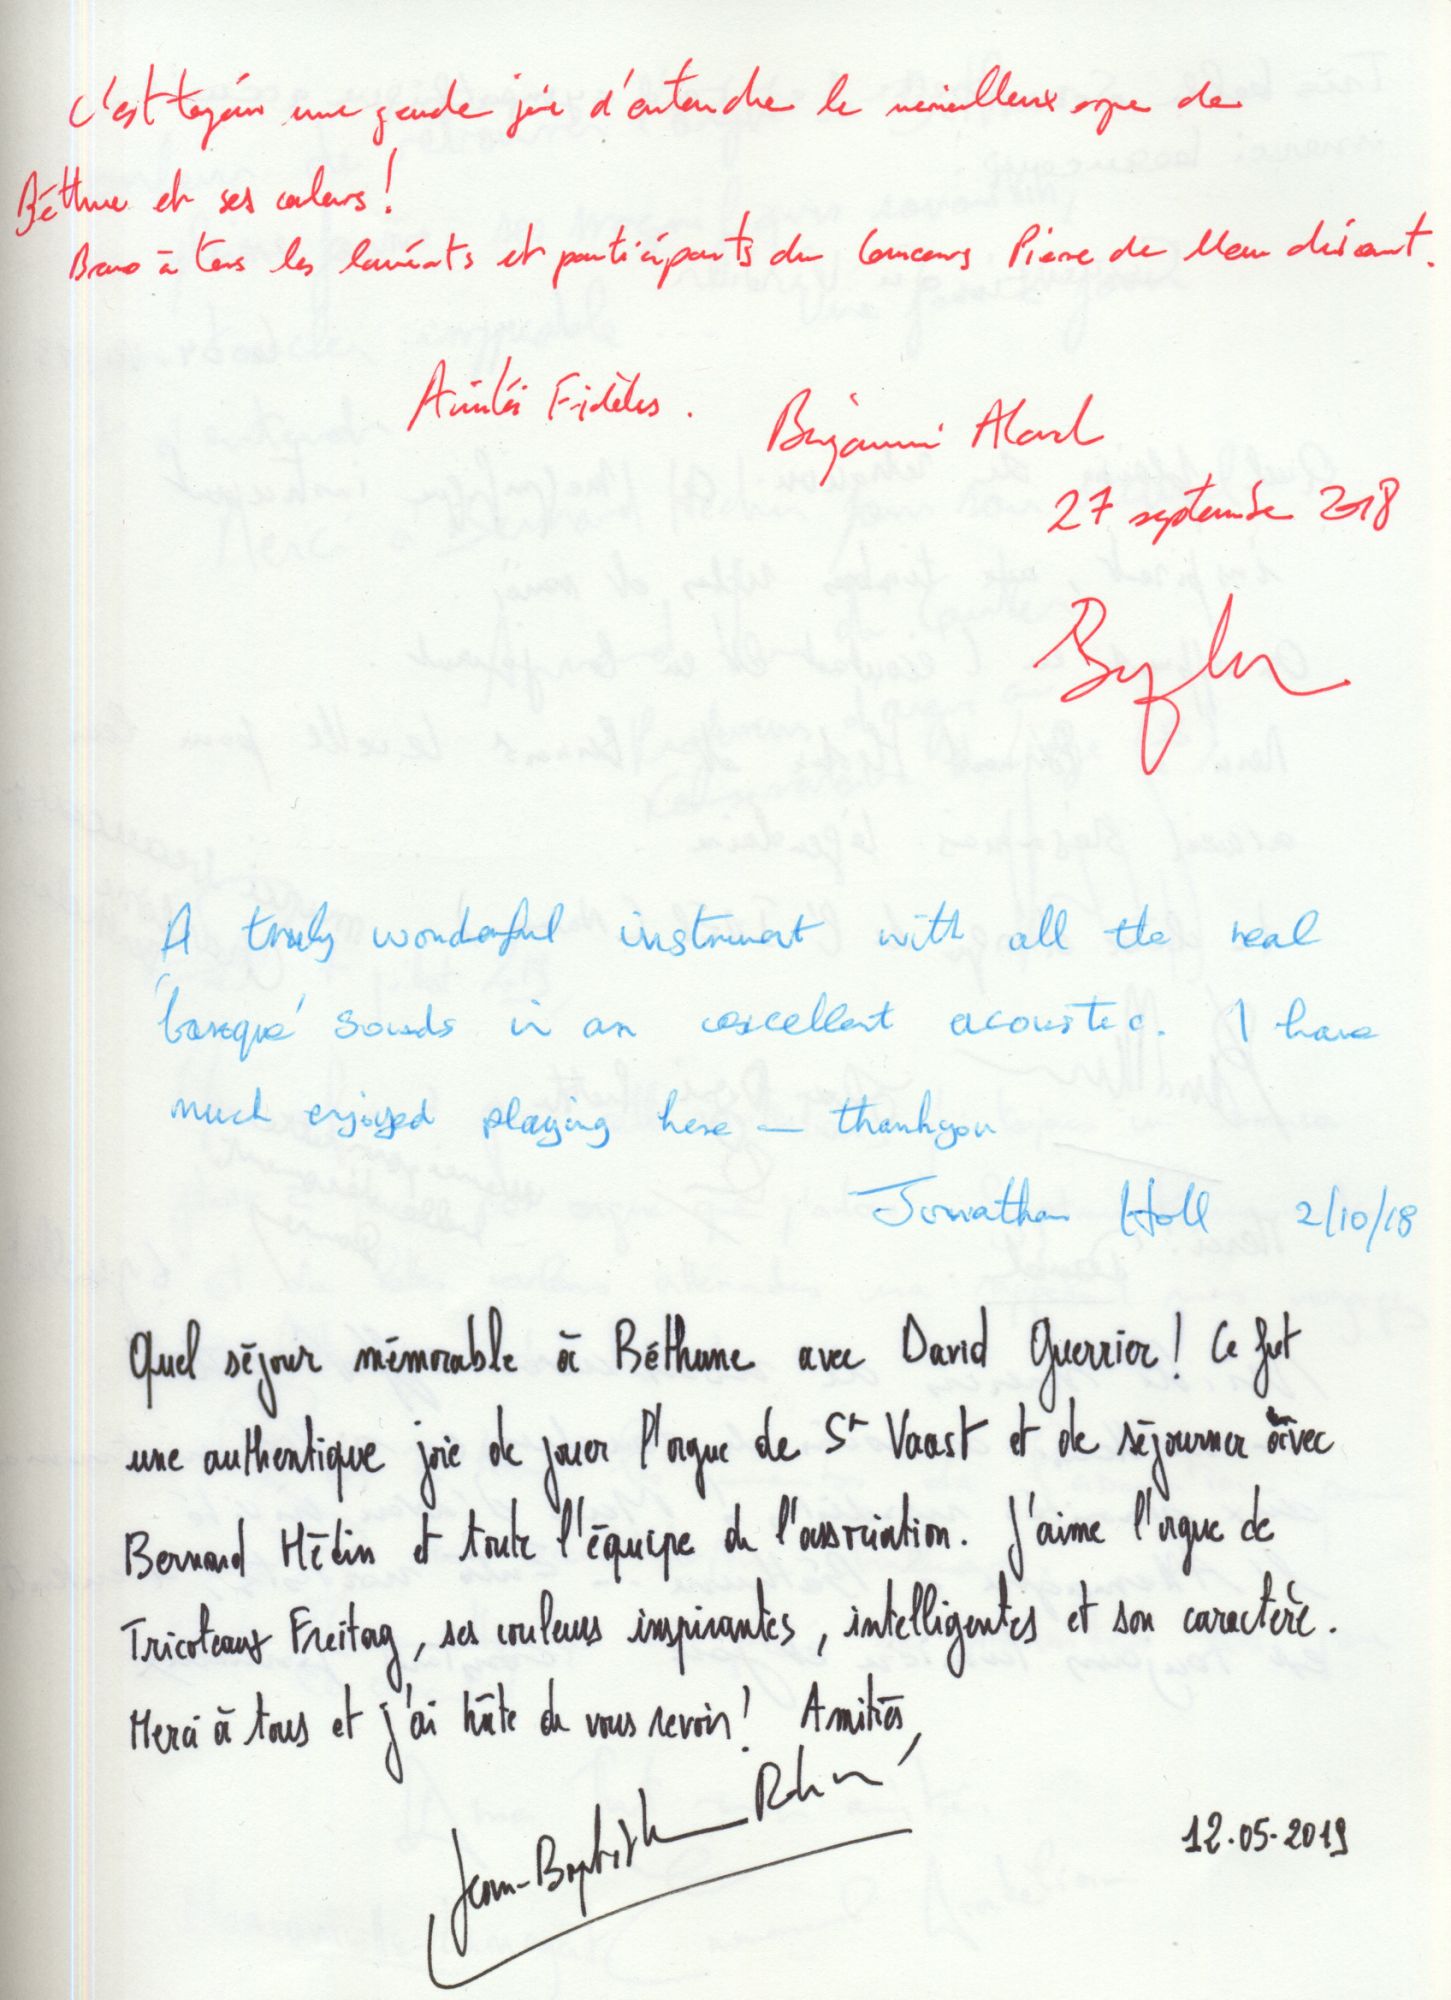 C'est toujours une grande joie d'entendre le merveilleux orgue de
Béthune et ses couleurs !
Bravo à tous les lauréats et participants du Concours Pierre de Manchicourt.
Amitiés Fidèles .
Benjamin Alard
27 septembre 2018
A truly wonderful instrument with all the real
'baroque' sounds in an excellent acoustic. I have
much enjoyed playing here – thankyou
Jonathan Holl 2/10/18
Quel séjour mémorable à Béthune avec David Guerrier ! Ce fut
une authentique joie de jouer l'orgue de St Vaast et de séjourner avec
Bernard Hédin et toute l'équipe de l'association. J'aime l'orgue de
Tricoteaux Freitag, ses couleurs inspirantes, intelligentes et son caractère.
Merci à tous et j'ai hâte de vous revoir ! Amitiés,
Jean-Baptiste Robin
12.05.2019